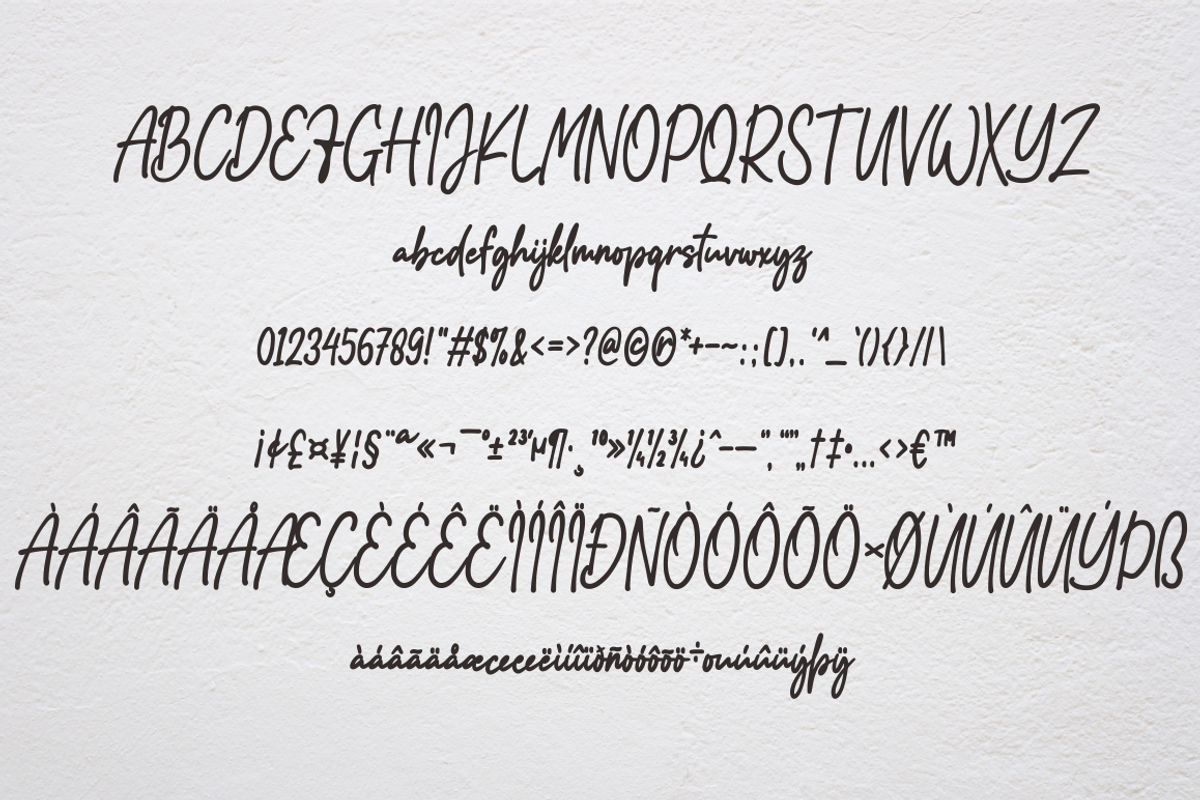 ABCDEFGHIJKLMNOPQRSTUVWXYZ
abcdefghijklmnopqrstuvwxyz
0123456789!"#$%&<=>?@©®*+-–~:;[],.'^_`(){}/|\
¡¢£¤¥¦§¨ª«¬¯°±²³´µ¶·¸¹º»¼½¾¿ˆ–—"‚“”„†‡•…‹›€™
ÀÁÂÃÄÅÆÇÈÉÊËÌÍÎÏÐÑÒÓÔÕÖ×ØÙÚÛÜÝÞß
àáâãäåæceceëìíîïðñòóôõö÷ouúûüýþÿ